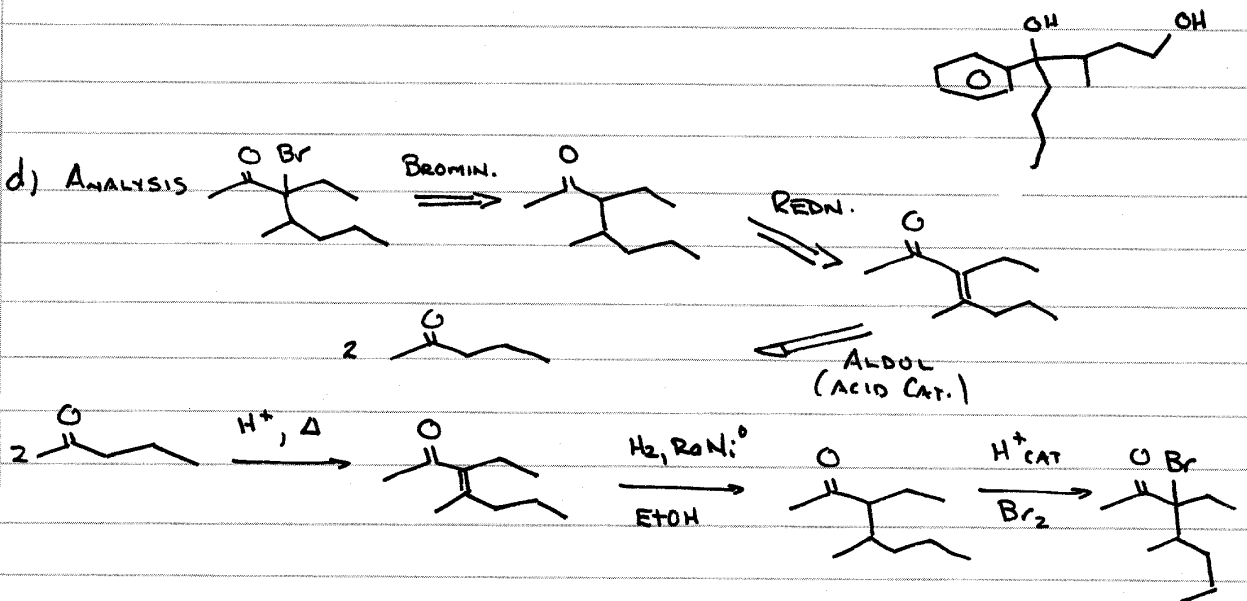 OH
OH
O
d) ANALYSIS
O Br
BROMIN.
O
REDN.
O
2
O
ALDOL
(ACID CAT.)
2
O
H⁺, Δ
O
H₂, RaNi⁰
EtOH
O
H⁺ CAT
Br₂
O Br